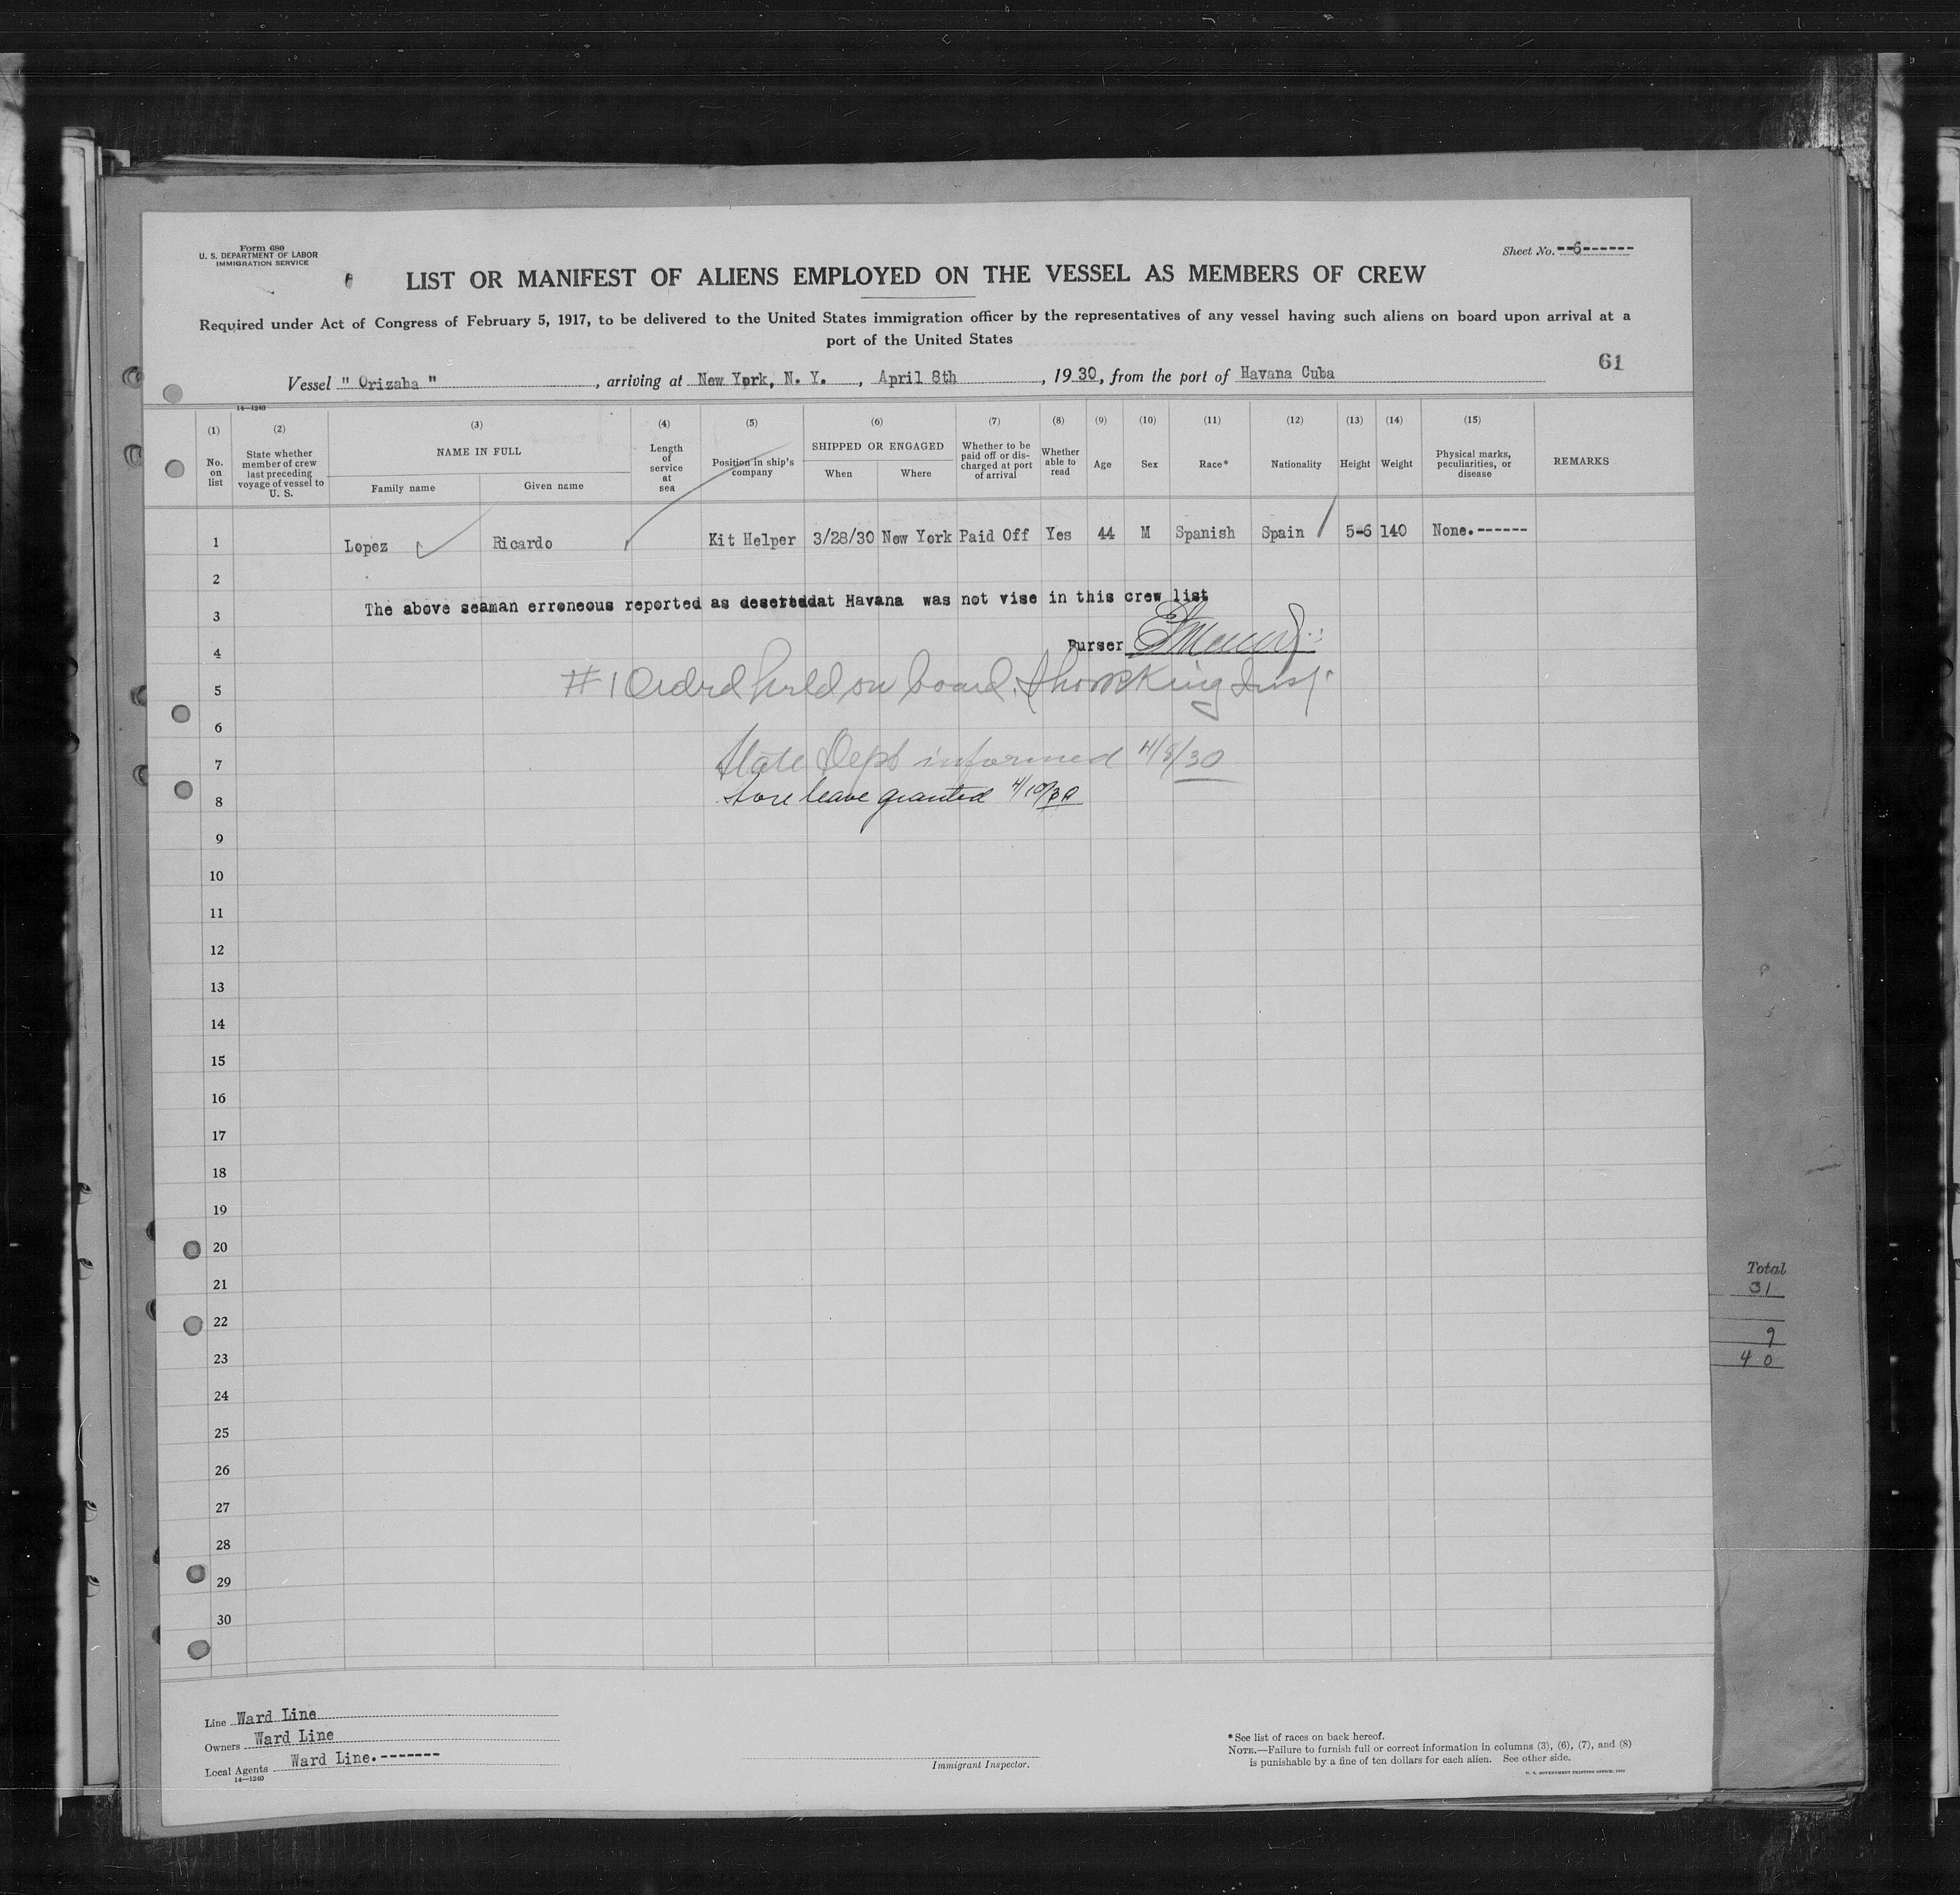 Form 680
U. S. DEPARTMENT OF LABOR
IMMIGRATION SERVICE
Sheet No. --6------
LIST OR MANIFEST OF ALIENS EMPLOYED ON THE VESSEL AS MEMBERS OF CREW
Required under Act of Congress of February 5, 1917, to be delivered to the United States immigration officer by the representatives of any vessel having such aliens on board upon arrival at a
port of the United States
61
Vessel " Orizaba ", arriving at New York, N. Y., April 8th, 1930, from the port of Havana Cuba
14—1240
(1) (2) (3) (4) (5) (6) (7) (8) (9) (10) (11) (12) (13) (14) (15)
No. on list
State whether member of crew last preceding voyage of vessel to U. S.
NAME IN FULL
Family name
Given name
Length of service at sea
Position in ship's company
SHIPPED OR ENGAGED
When
Where
Whether to be paid off or discharged at port of arrival
Whether able to read
Age
Sex
Race*
Nationality
Height
Weight
Physical marks, peculiarities, or disease
REMARKS
1 Lopez Ricardo Kit Helper 3/28/30 New York Paid Off Yes 44 M Spanish Spain 5-6 140 None.------
2
The above seaman erroneous reported as desertedat Havana was not vise in this crew list
3
Purser
4
#1 Ordrd held on board. King Insp.
5
6
State Dept informed 4/8/30
7
Sore leave granted 4/10/30
8
9
10
11
12
13
14
15
16
17
18
19
20
21
22
23
24
25
26
27
28
29
30
Total
31
9
40
Line Ward Line
Owners Ward Line
Local Agents Ward Line.-------
14—1240
Immigrant Inspector.
*See list of races on back hereof.
NOTE.—Failure to furnish full or correct information in columns (3), (6), (7), and (8)
is punishable by a fine of ten dollars for each alien. See other side.